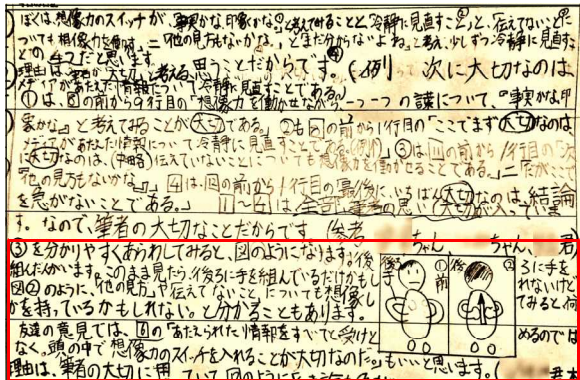 ぼくは、想像力のスイッチが、「事実かな、印象かな。」と考えてみることと、「冷静に見直すこと」と、「伝えていないことに
ついても想像力を働かす」、「他の見方もないかな。」と「まだ分からないよね。」と考え、少しずつ冷静に見直すこ
との　　つだと思います。
理由は、筆者が大切と考える、思うことだからです。(例　次に大切なのは、
メディアがあたえた情報について冷静に見直すことである。)
①は、図の前から9行目の「想像力を働かせながら、一つ一つの言葉について、『事実かな、印
象かな。』と考えてみることが大切である。」②も図の前から1行目の「ここでまず大切なのは、
メディアがあたえた情報について冷静に見直すことである。(例)」③は11の前から1行目の「次
に大切なのは、(中略)伝えていないことについても想像力を働かせることである。」
『他の見方もないかな。』」4は12の前から1行目の「最後に、いちばん大切なのは、結論
を急がないことである。」1〜4は、全部筆者の思い、大切が入っていま
す。なので、筆者の大切なことだからです(参考　ちゃん　ちゃん、君)
③を分かりやすくあらわしてみると、図のようになります。後
ろに手を
組んだ人がいます。このまま見たら、後ろに手を組んでいるだけかもし
れないけど
図②のように、「他の見方」や「伝えてないこと」についても想像し
てみると何
かを持っているかもしれない。と分かることもあります。
後ろ
手
①
前
後
②
友達の意見では、6の「あたえられた情報をすべてと受けと
めるのでは
なく、頭の中で想像力のスイッチを入れることが大切なのだ。」もいいと思います。(
理由は、筆者の大切に用　ていて